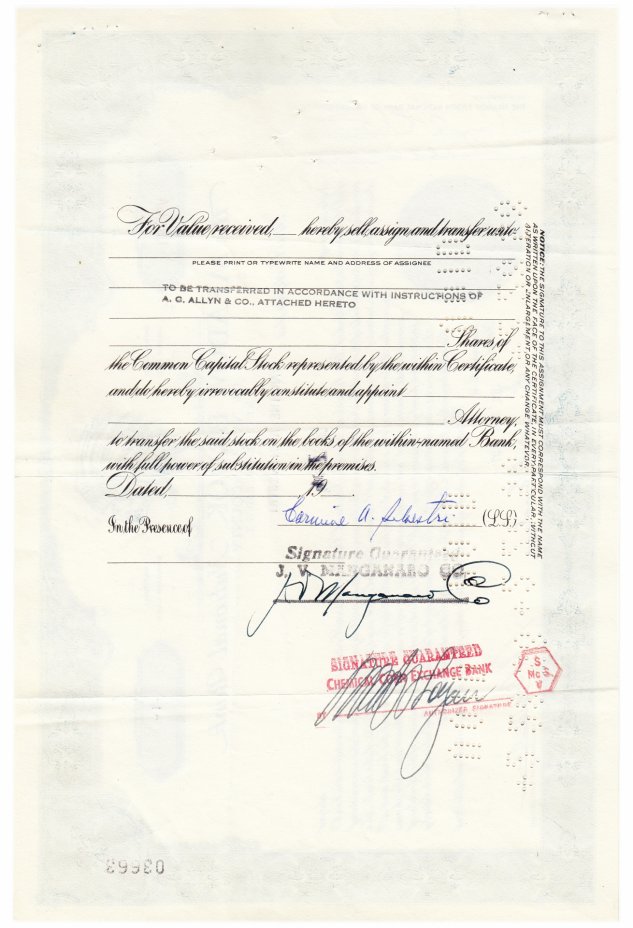 For Value received, ___ hereby sell, assign and transfer unto
PLEASE PRINT OR TYPEWRITE NAME AND ADDRESS OF ASSIGNEE
TO BE TRANSFERRED IN ACCORDANCE WITH INSTRUCTIONS OF
A. C. ALLYN & CO., ATTACHED HERETO
Shares of
the Common Capital Stock represented by the within Certificate,
and do hereby irrevocably constitute and appoint
Attorney,
to transfer the said stock on the books of the within-named Bank,
with full power of substitution in the premises.
Dated, 19
In the Presence of
Carmine A. Silvestri (L.S.)
Signature Guaranteed
J. V. MANGANARO CO.
J V Manganaro
SIGNATURE GUARANTEED
CHEMICAL CORN EXCHANGE BANK
BY
AUTHORIZED SIGNATURE
S.
Mc
A
03663
NOTICE: THE SIGNATURE TO THIS ASSIGNMENT MUST CORRESPOND WITH THE NAME
AS WRITTEN UPON THE FACE OF THE CERTIFICATE, IN EVERY PARTICULAR, WITHOUT
ALTERATION OR ENLARGEMENT, OR ANY CHANGE WHATEVER.